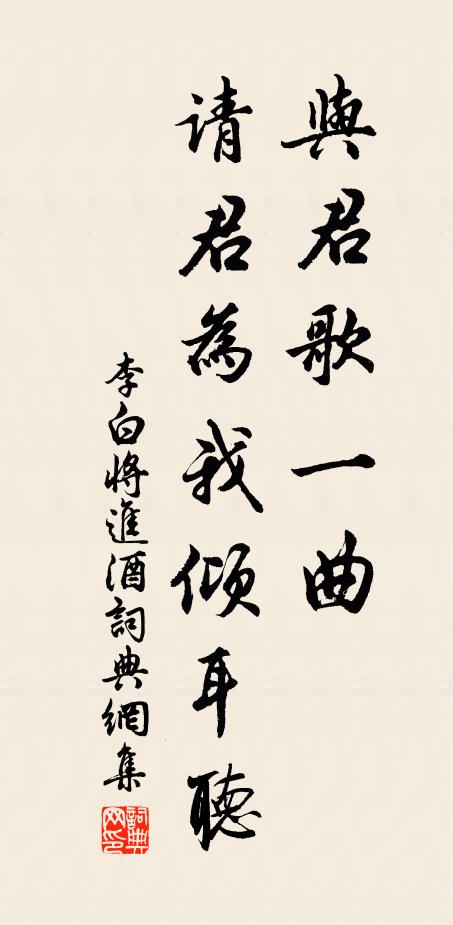 與君歌一曲
請君為我傾耳聽
李白將進酒詞典網集
詞典
网印